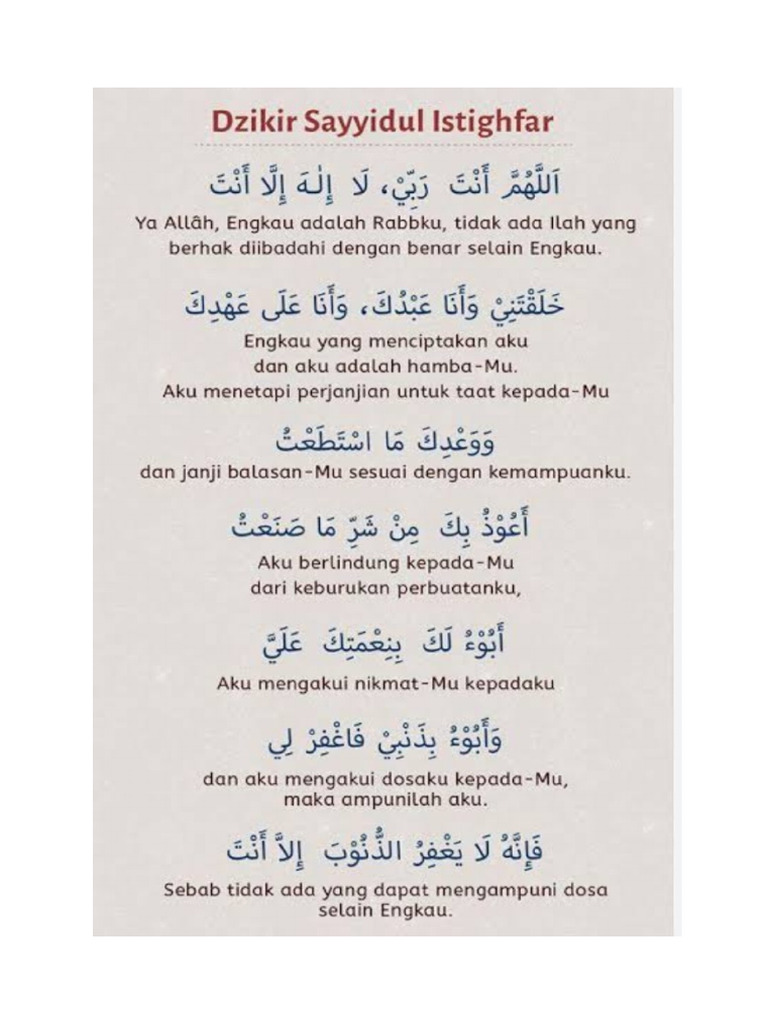 Dzikir Sayyidul Istighfar
اَللَّهُمَّ أَنْتَ رَبِّيْ، لَا إِلٰـهَ إِلَّا أَنْتَ
Ya Allâh, Engkau adalah Rabbku, tidak ada Ilah yang
berhak diibadahi dengan benar selain Engkau.
خَلَقْتَنِيْ وَأَنَا عَبْدُكَ، وَأَنَا عَلَى عَهْدِكَ
Engkau yang menciptakan aku
dan aku adalah hamba-Mu.
Aku menetapi perjanjian untuk taat kepada-Mu
وَوَعْدِكَ مَا اسْتَطَعْتُ
dan janji balasan-Mu sesuai dengan kemampuanku.
أَعُوْذُ بِكَ مِنْ شَرِّ مَا صَنَعْتُ
Aku berlindung kepada-Mu
dari keburukan perbuatanku,
أَبُوْءُ لَكَ بِنِعْمَتِكَ عَلَيَّ
Aku mengakui nikmat-Mu kepadaku
وَأَبُوْءُ بِذَنْبِيْ فَاغْفِرْ لِي
dan aku mengakui dosaku kepada-Mu,
maka ampunilah aku.
فَإِنَّهُ لَا يَغْفِرُ الذُّنُوْبَ إِلاَّ أَنْتَ
Sebab tidak ada yang dapat mengampuni dosa
selain Engkau.